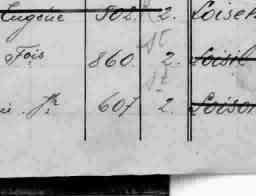 Eugène 802. 2. Loisel
Fois 860. 2. Loisil
Jh 607 2. Loison